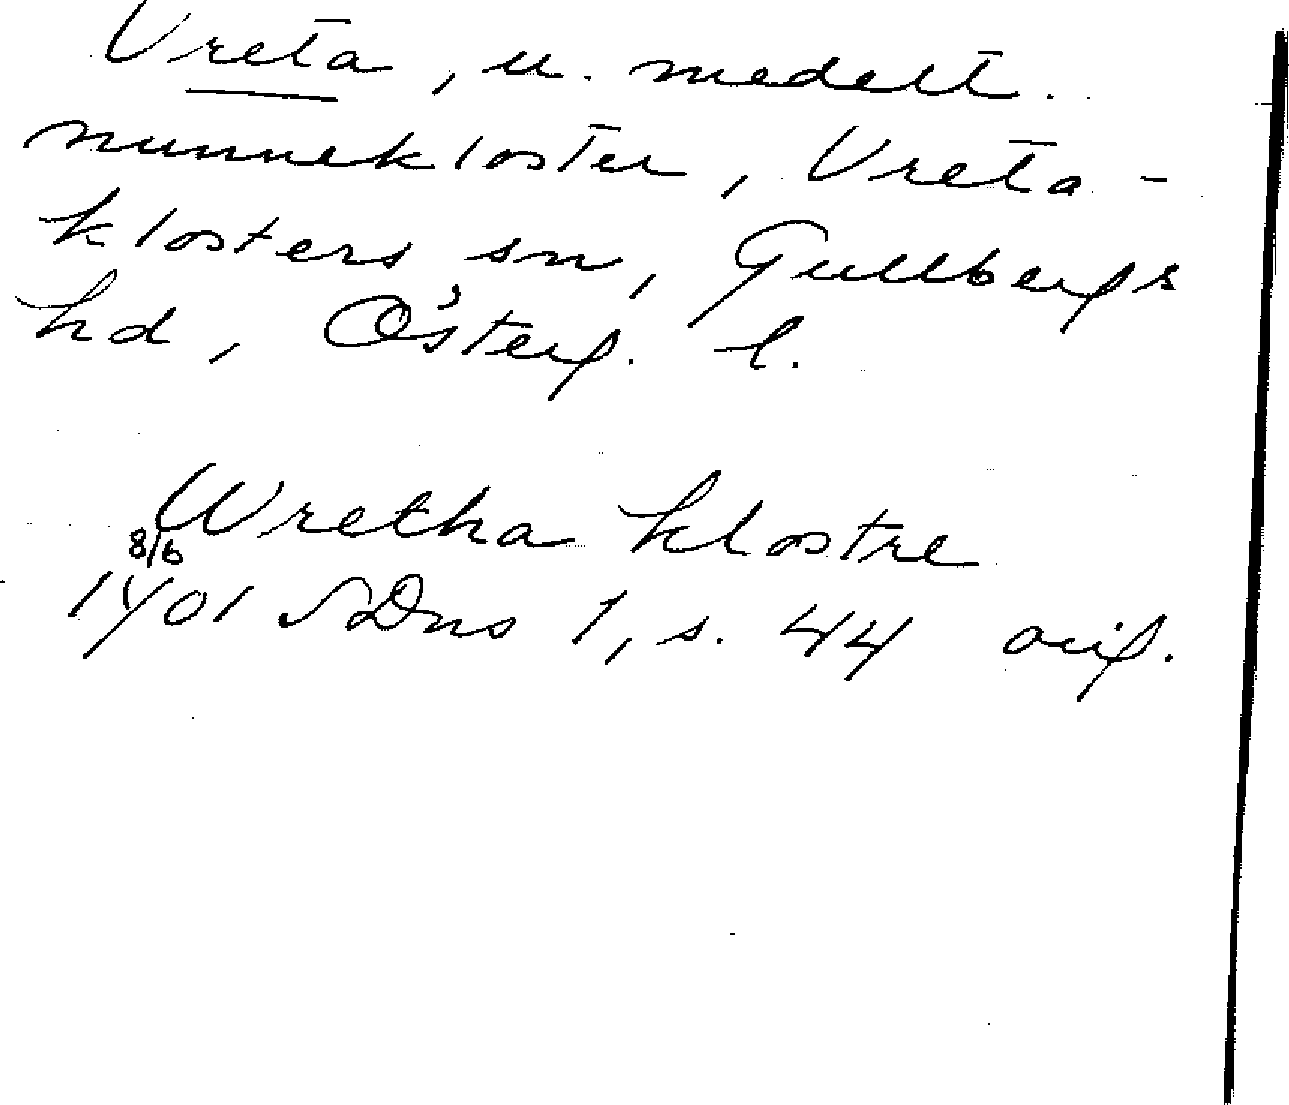 Vreta, u. medelt.
nunnekloster, Vreta-
klosters sn, Gullbergs
hd, Österg. l.
Wretha klostre
8/6
1401 SDns 1, s. 44 orig.